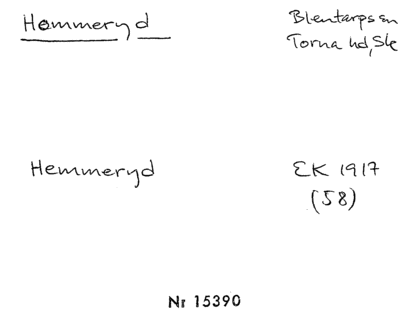 Hemmeryd
Blentarps sn
Torna hd, Sk
Hemmeryd
EK 1917
(58)
Nr 15390